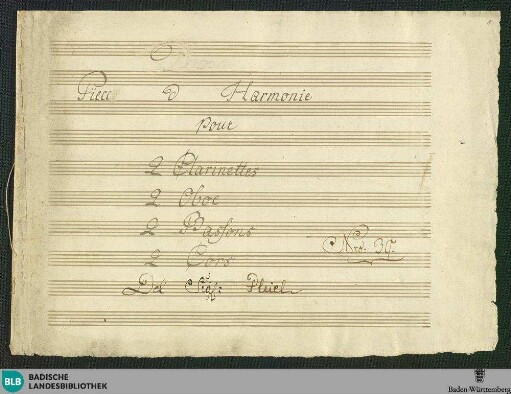 Piece D Harmonie
pour
2 Clarinettes
2 Oboe
2 Bassons
2 Cors
Nro. 39.
Del Sigr: Pleiel
BLB BADISCHE
LANDESBIBLIOTHEK
Baden-Württemberg